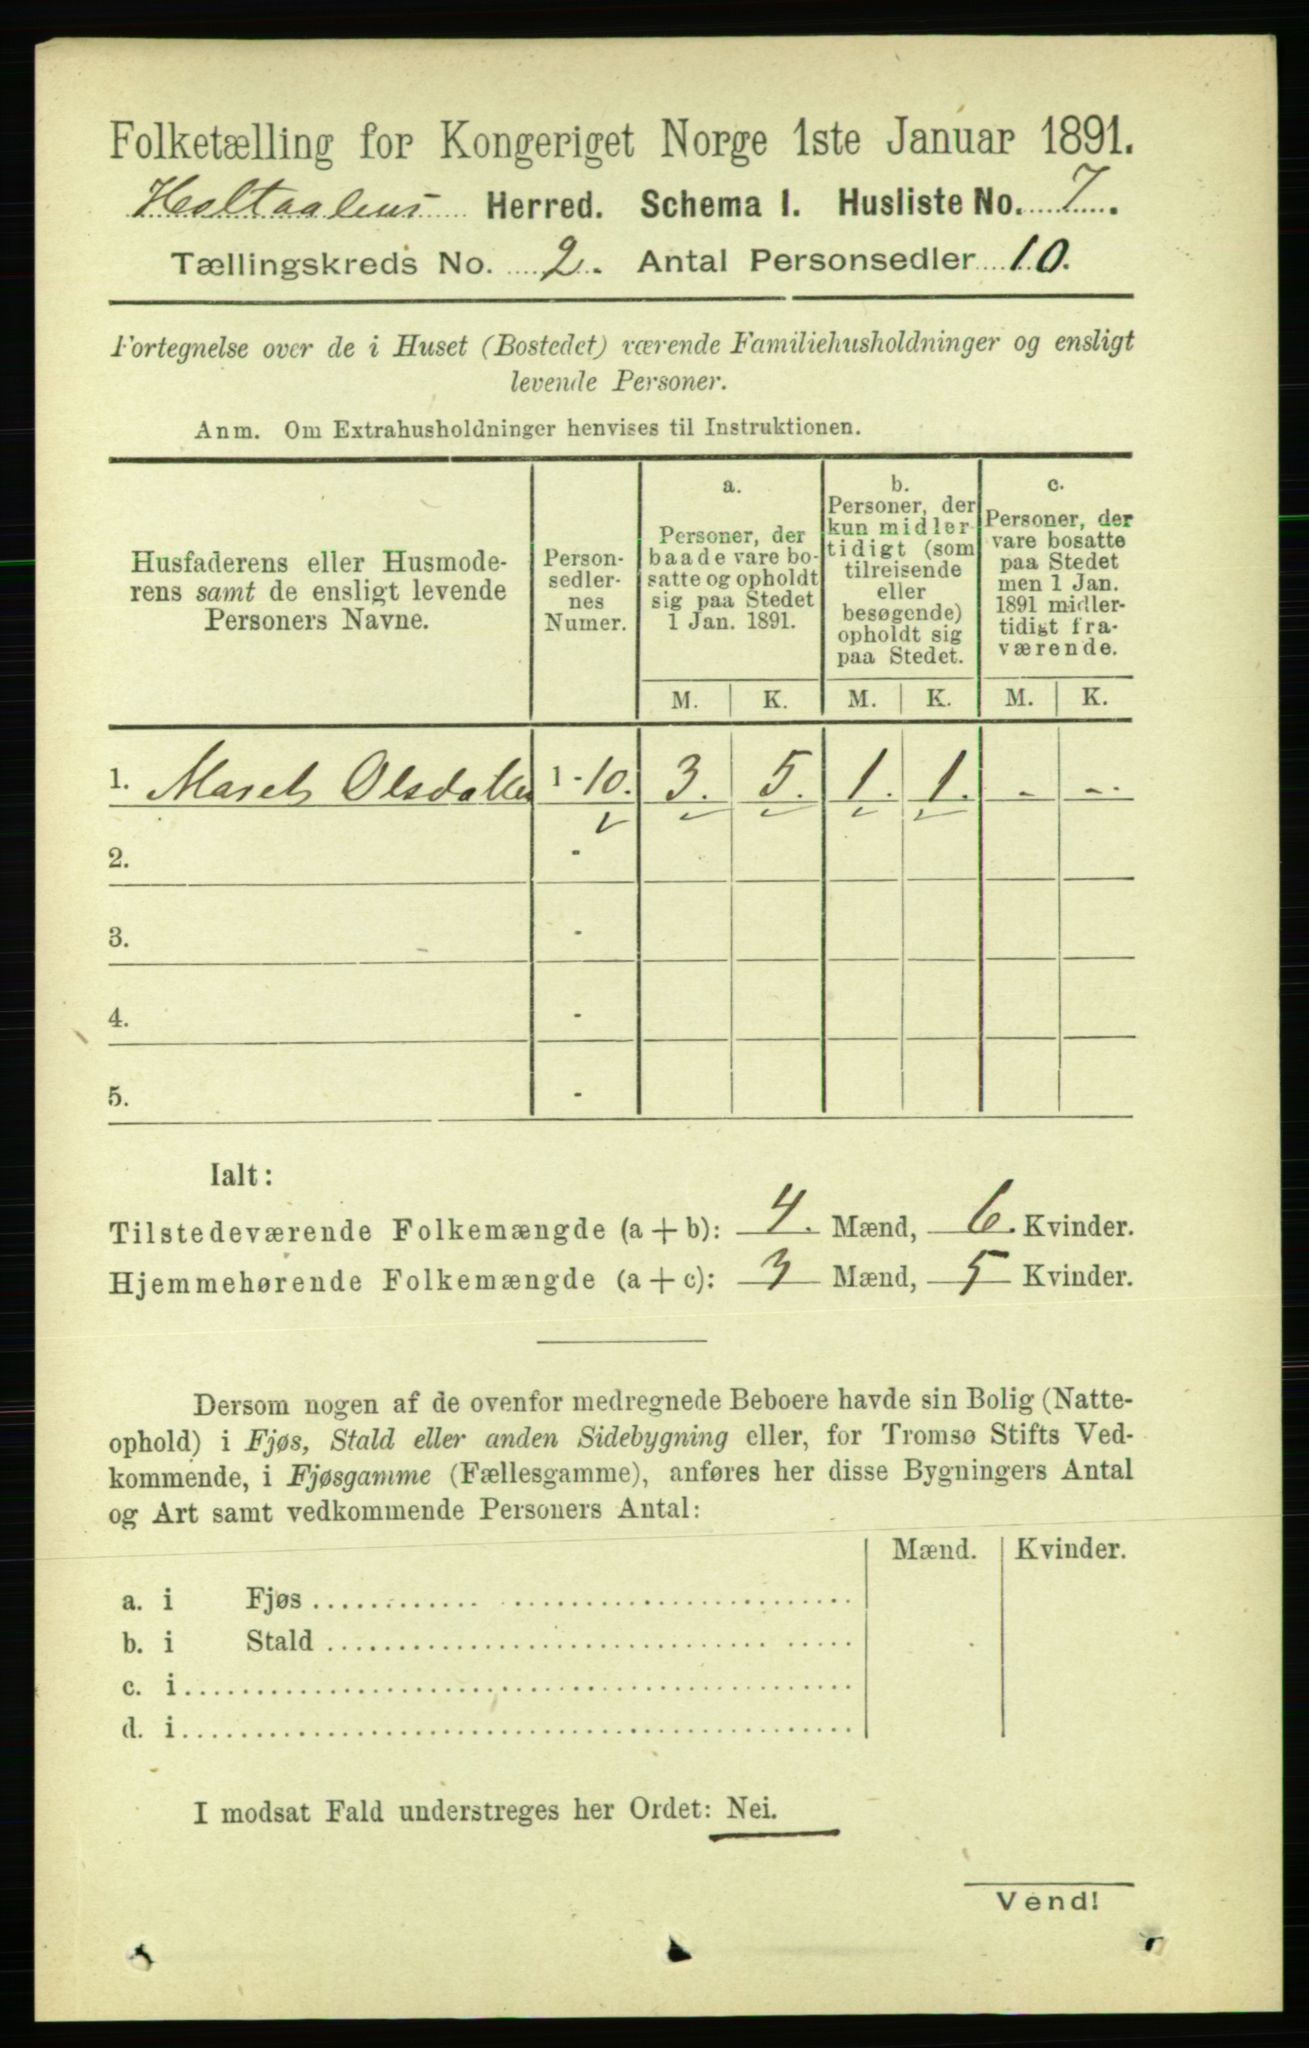 Folketælling for Kongeriget Norge 1ste Januar 1891.
Holtaalens Herred. Schema 1. Husliste No. 7.
Tællingskreds No. 2. Antal Personsedler 10.
Fortegnelse over de i Huset (Bostedet) værende Familiehusholdninger og ensligt
levende Personer.
Anm. Om Extrahusholdninger henvises til Instruktionen.
Husfaderens eller Husmode-
rens samt de ensligt levende
Personers Navne.
Person-
sedler-
nes
Numer.
a.
Personer, der
baade vare bo-
satte og opholdt
sig paa Stedet
1 Jan. 1891.
b.
Personer, der
kun midler-
tidigt (som
tilreisende
eller
besøgende)
opholdt sig
paa Stedet.
c.
Personer, der
vare bosatte
paa Stedet
men 1 Jan.
1891 midler-
tidigt fra-
værende.
M. K. M. K. M. K.
1. Maret Olsdatter 1 - 10. 3. 5. 1. 1. - -.
2. -
3. -
4. -
5. -
Ialt:
Tilstedeværende Folkemængde (a + b): 4. Mænd, 6. Kvinder.
Hjemmehørende Folkemængde (a + c): 3 Mænd, 5 Kvinder.
Dersom nogen af de ovenfor medregnede Beboere havde sin Bolig (Natte-
ophold) i Fjøs, Stald eller anden Sidebygning eller, for Tromsø Stifts Ved-
kommende, i Fjøsgamme (Fællesgamme), anføres her disse Bygningers Antal
og Art samt vedkommende Personers Antal:
Mænd. Kvinder.
a. i Fjøs
b. i Stald
c. i
d. i
I modsat Fald understreges her Ordet: Nei.
Vend!